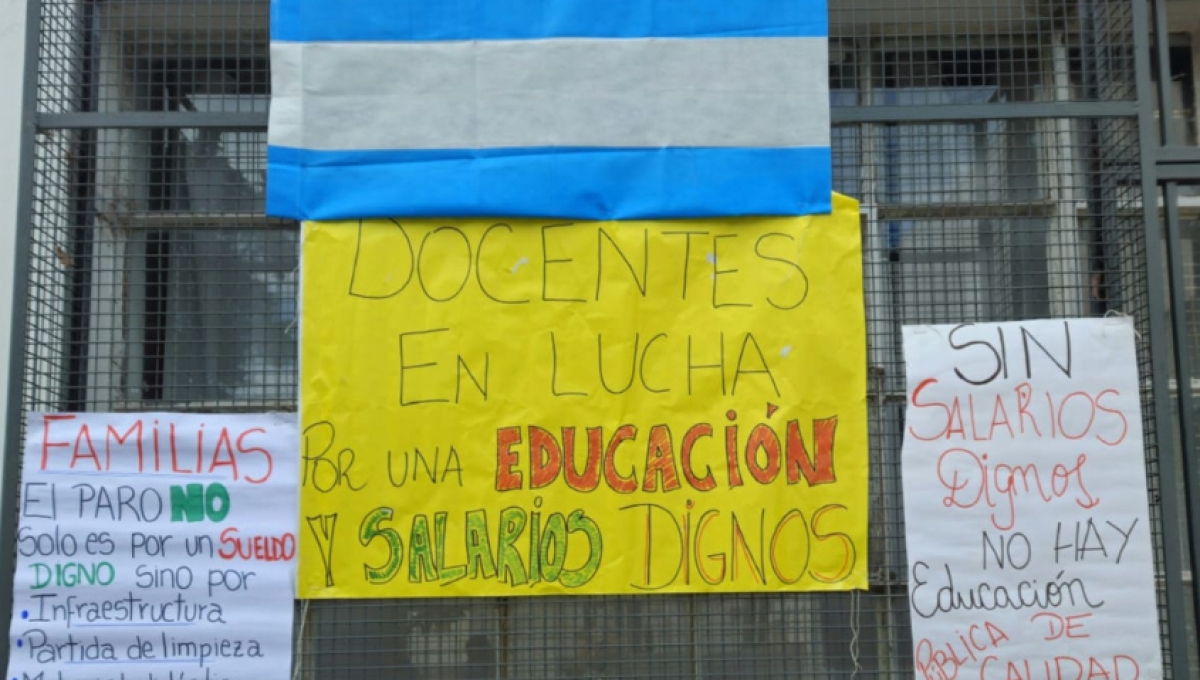 DOCENTES
EN LUCHA
POR UNA EDUCACIÓN
Y SALARIOS DIGNOS
FAMILIAS
El PARO NO
Solo es por un SUELDO
DIGNO sino por
• Infraestructura
• Partida de limpieza
SIN
SALARIOS
Dignos
NO HAY
Educación
PÚBLICA DE
CALIDAD